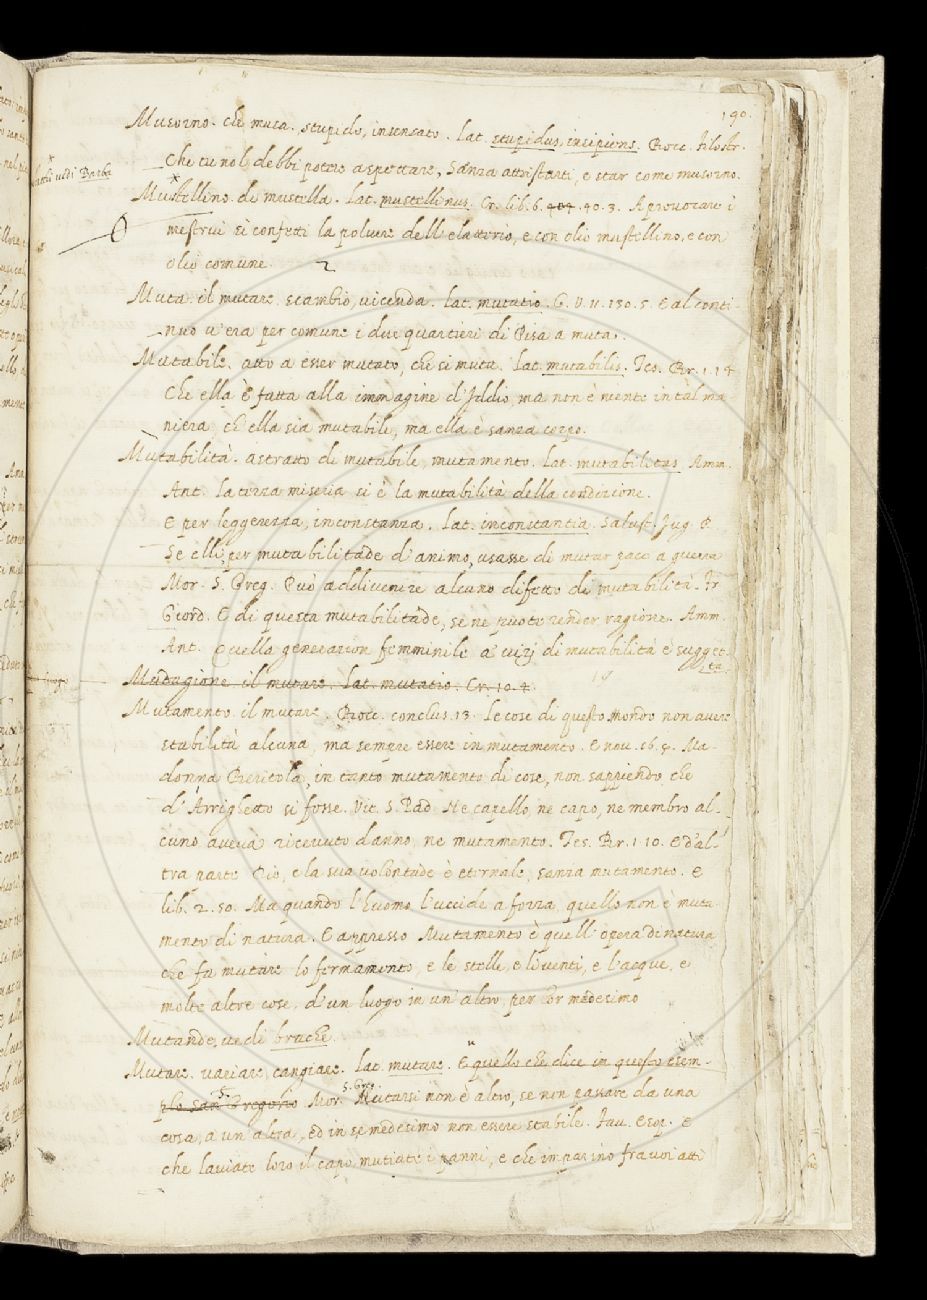 190.
Musorno. che musa. stupido, insensato. Lat. stupidus, insipiens. Bocc. filostr.
Che tu nol debbi potere aspettare, Sanza attristarti, e star come musorno.
vedi Barba
Mustellino. di mustella. Lat. mustellinus. Cr. lib. 6. 404. 40. 3. A provocare i
mestrui si confetti la polvere dell'elatterio, e con olio mustellino, e con
olio comune.
Muta. il mutare, scambio, vicenda. Lat. mutatio. G. V. 11. 130. 5. E al conti-
nuo v'era per comune i due quartieri di Pisa a muta.
Mutabile. atto a esser mutato, che si muta. Lat. mutabilis. Tes. Br. 1. 14
Che ella è fatta alla immagine d'Iddio, ma non è niente in tal ma
niera, ch'ella sia mutabile, ma ella è sanza corpo.
Mutabilità. astratto di mutabile, mutamento. Lat. mutabilitas. Amm.
Ant. la terza miseria si è la mutabilità della condizione.
E per leggerezza, inconstanza. Lat. inconstantia. Salust. Jug. R
Se elli per mutabilitade d'animo, usasse di mutar pace a guerra
Mor. S. Greg. Può addivenire alcuno difetto di mutabilità. Fr
Giord. E di questa mutabilitade, se ne puote render ragione. Amm.
Ant. Quella generazion femminile a vizj di mutabilità è sugget-
ta.
Mutagione il mutare. Lat. mutatio. Cr. 10. 4.
Mutamento. il mutare. Bocc. conclus. 13. Le cose di questo mondo non avere
stabilità alcuna, ma sempre essere in mutamento. E nov. 16. 9. Ma-
donna Beritola, in tanto mutamento di cose, non sappiendo che
d'Arrighetto si fosse. Vit. S. Pad. Ne capello, ne capo, ne membro al-
cuno aveva ricevuto danno, ne mutamento. Tes. Br. 1. 10. E d'al-
tra parte Dio, e la sua volontade è eternale, sanza mutamento. E
lib. 2. 50. Ma quando l'huomo l'uccide a forza, quello non è muta-
mento di natura. E appresso Mutamento è quell'opera di natura
che fa mutare lo fermamento, e le stelle, e li venti, e l'acque, e
molte altre cose, d'un luogo in un'altro, per lor medesimo
Mutande, vedi brache.
Mutare. variare, cangiare. Lat. mutare. E quello che dice in questo esem-
plo San Gregorio Mor. S. Greg. Mutarsi non è altro, se non passare da una
cosa, a un'altra, ed in se medesimo non essere stabile. Fav. Esop. E
che laviate loro il capo, mutiate i panni, e che imparino fra voi atti